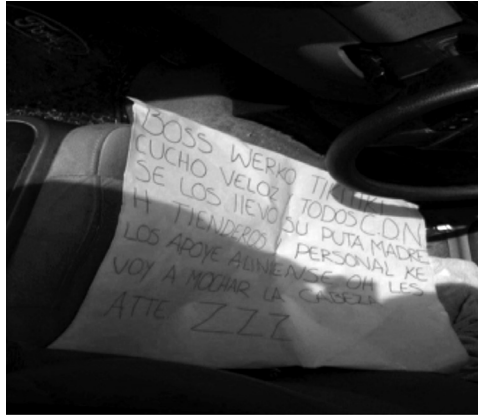 Ford
BOSS WERKO TIKI TIKI
CUCHO VELOZ TODOS C.D.N
SE LOS llEVO SU PUTA MADRE
H TIENDEROS Y PERSONAL KE
LOS APOYE ALINENSE OH LES
VOY A MOCHAR LA CABEZA
ATTE ZZZ